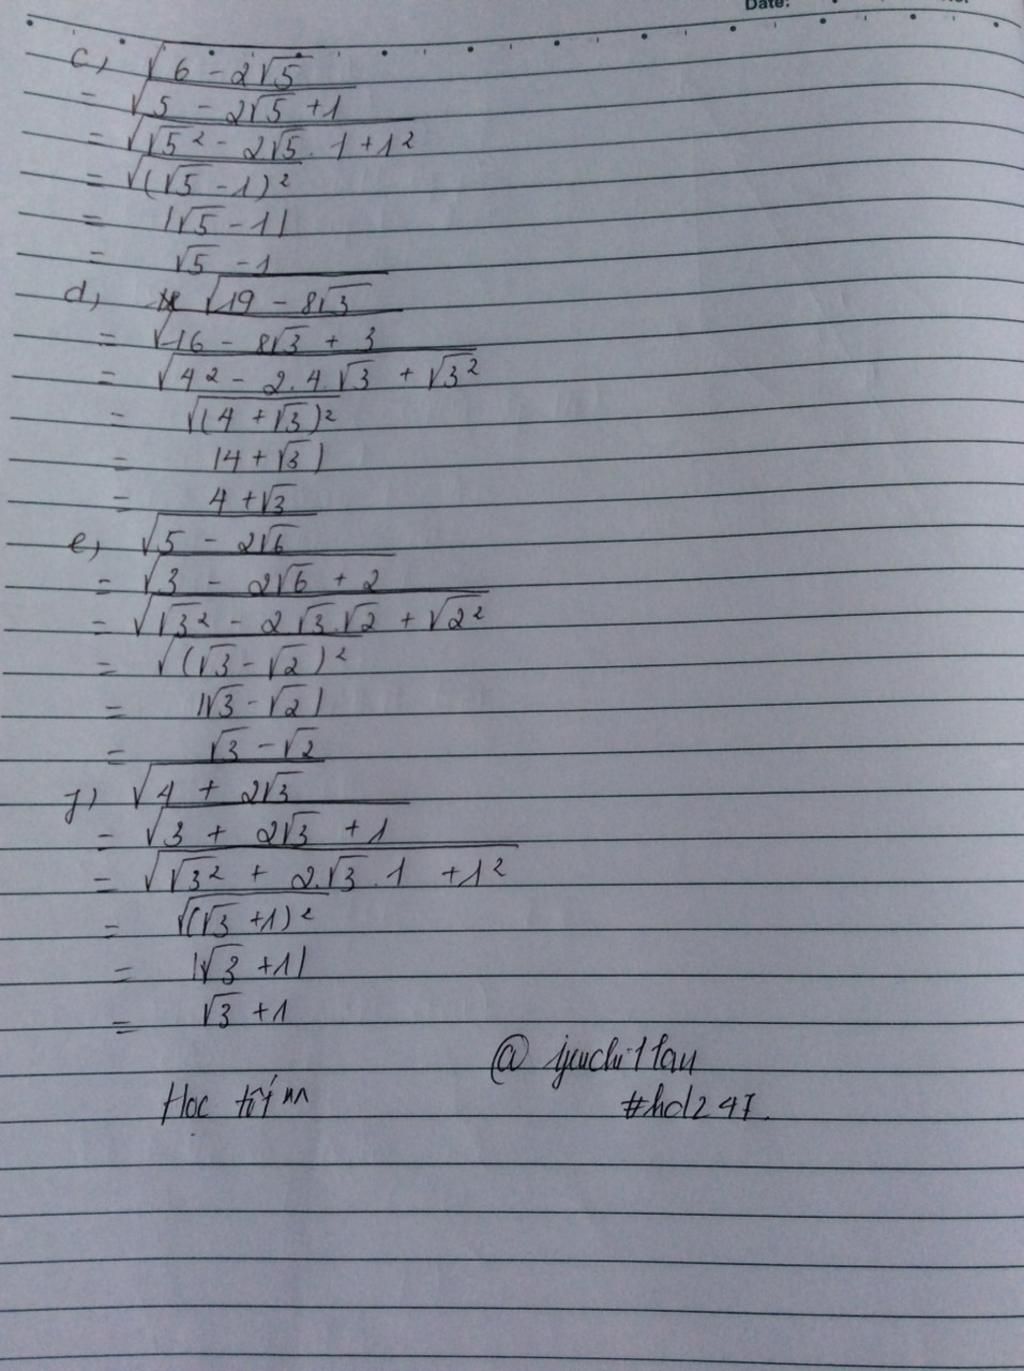 Date:
c) √(6 - 2√5)
= √(5 - 2√5 + 1)
= √(√5² - 2√5 . 1 + 1²)
= √((√5 - 1)²)
= |√5 - 1|
= √5 - 1
d) √(19 - 8√3)
= √(16 - 8√3 + 3)
= √(4² - 2.4.√3 + √3²)
= √((4 + √3)²)
= |4 + √3|
= 4 + √3
e) √(5 - 2√6)
= √(3 - 2√6 + 2)
= √(√3² - 2.√3.√2 + √2²)
= √((√3 - √2)²)
= |√3 - √2|
= √3 - √2
g) √(4 + 2√3)
= √(3 + 2√3 + 1)
= √(√3² + 2.√3.1 + 1²)
= √((√3 + 1)²)
= |√3 + 1|
= √3 + 1
Học tốt nn